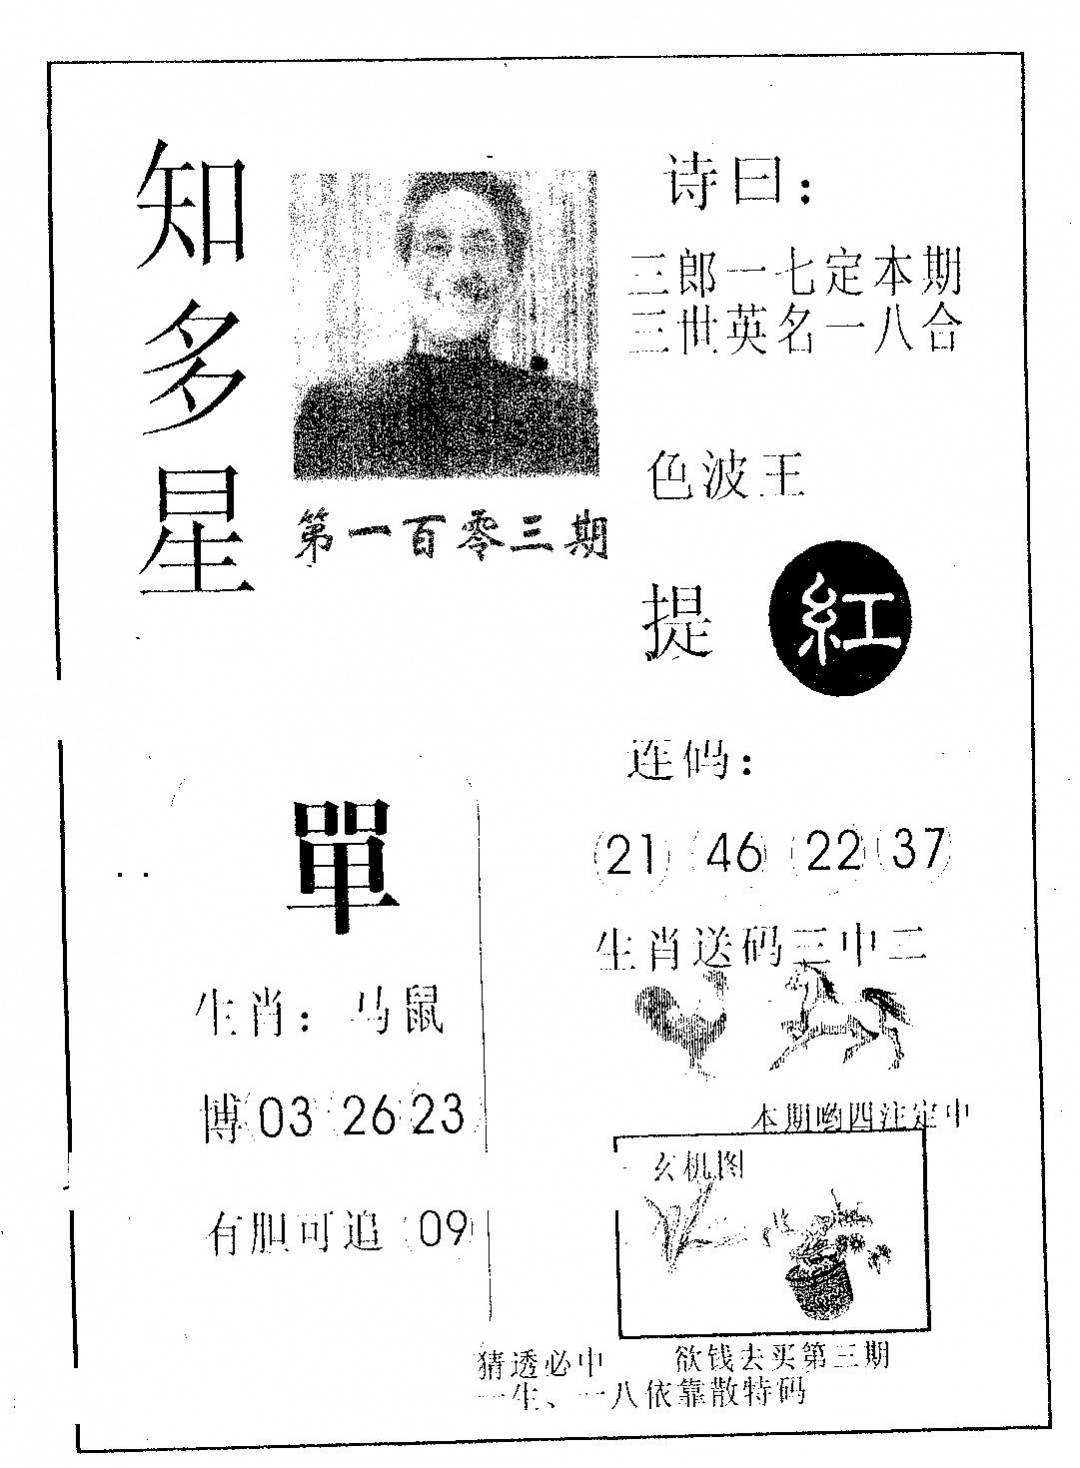 知多星
第一百零三期
诗曰：
三郎一七定本期
三世英名一八合
色波王
提 紅
单码：
21 46 22 37
生肖送码三中二
本期哟四注定中
玄机图
單
生肖：马鼠
博 03 26 23
有胆可追 09
猜透必中 欲钱去买第三期
一生、一八依靠散特码